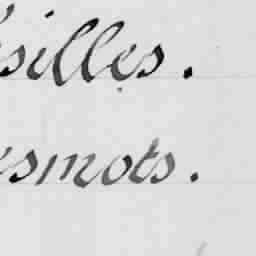 silles.
smots.